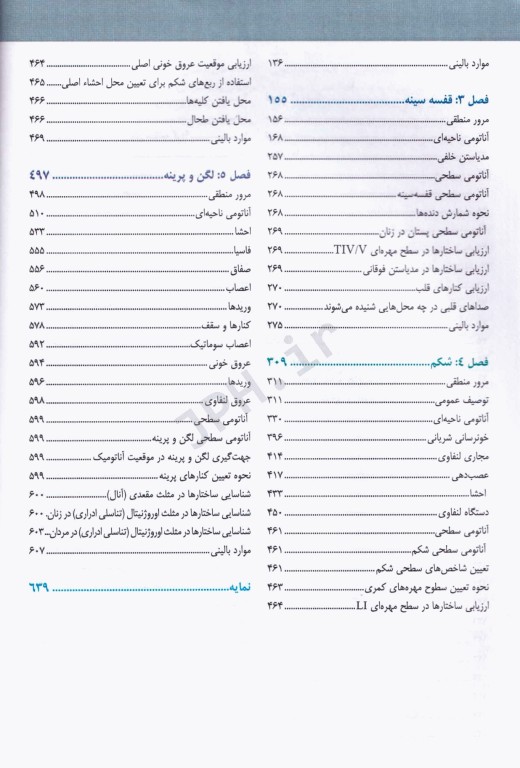 موارد بالینی ........ ۱۳۶
فصل ۳: قفسه سینه ........ ۱۵۵
مرور منطقی ........ ۱۵۶
آناتومی ناحیه‌ای ........ ۱۶۸
مدیاستن خلفی ........ ۲۵۷
آناتومی سطحی ........ ۲۶۸
آناتومی سطحی قفسه‌سینه ........ ۲۶۸
نحوه شمارش دنده‌ها ........ ۲۶۸
آناتومی سطحی پستان در زنان ........ ۲۶۹
ارزیابی ساختارها در سطح مهره‌ای TIV/V ........ ۲۶۹
ارزیابی ساختارها در مدیاستن فوقانی ........ ۲۶۹
ارزیابی کنارهای قلب ........ ۲۷۰
صداهای قلبی در چه محل‌هایی شنیده می‌شوند ........ ۲۷۰
موارد بالینی ........ ۲۷۵
فصل ٤: شکم ........ ۳۰۹
مرور منطقی ........ ۳۱۱
توصیف عمومی ........ ۳۱۱
آناتومی ناحیه‌ای ........ ۳۳۰
خونرسانی شریانی ........ ۳۹۶
مجاری لنفاوی ........ ۴۱۴
عصب‌دهی ........ ۴۱۷
احشا ........ ۴۳۳
دستگاه لنفاوی ........ ۴۵۰
آناتومی سطحی ........ ۴۶۱
آناتومی سطحی شکم ........ ۴۶۱
تعیین شاخص‌های سطحی شکم ........ ۴۶۱
نحوه تعیین سطوح مهره‌های کمری ........ ۴۶۳
ارزیابی ساختارها در سطح مهره‌ای LI ........ ۴۶۴
ارزیابی موقعیت عروق خونی اصلی ........ ۴۶۴
استفاده از ربع‌های شکم برای تعیین محل احشاء اصلی ........ ۴۶۵
محل یافتن کلیه‌ها ........ ۴۶۶
محل یافتن طحال ........ ۴۶۶
موارد بالینی ........ ۴۶۹
فصل ٥: لگن و پرینه ........ ۴۹۷
مرور منطقی ........ ۴۹۸
آناتومی ناحیه‌ای ........ ۵۱۰
احشا ........ ۵۳۳
فاسیا ........ ۵۵۵
صفاق ........ ۵۵۶
اعصاب ........ ۵۶۰
وریدها ........ ۵۷۳
کنارها و سقف ........ ۵۷۸
اعصاب سوماتیک ........ ۵۹۲
عروق خونی ........ ۵۹۴
وریدها ........ ۵۹۶
عروق لنفاوی ........ ۵۹۸
آناتومی سطحی ........ ۵۹۹
آناتومی سطحی لگن و پرینه ........ ۵۹۹
جهت‌گیری لگن و پرینه در موقعیت آناتومیک ........ ۵۹۹
نحوه تعیین کنارهای پرینه ........ ۵۹۹
شناسایی ساختارها در مثلث مقعدی (آنال) ........ ۶۰۰
شناسایی ساختارها در مثلث اوروژنیتال (تناسلی ادراری) در زنان. ۶۰۰
شناسایی ساختارها در مثلث اوروژنیتال (تناسلی ادراری) در مردان... ۶۰۳
موارد بالینی ........ ۶۰۷
نمایه ........ ۶۳۹
JPH.ir